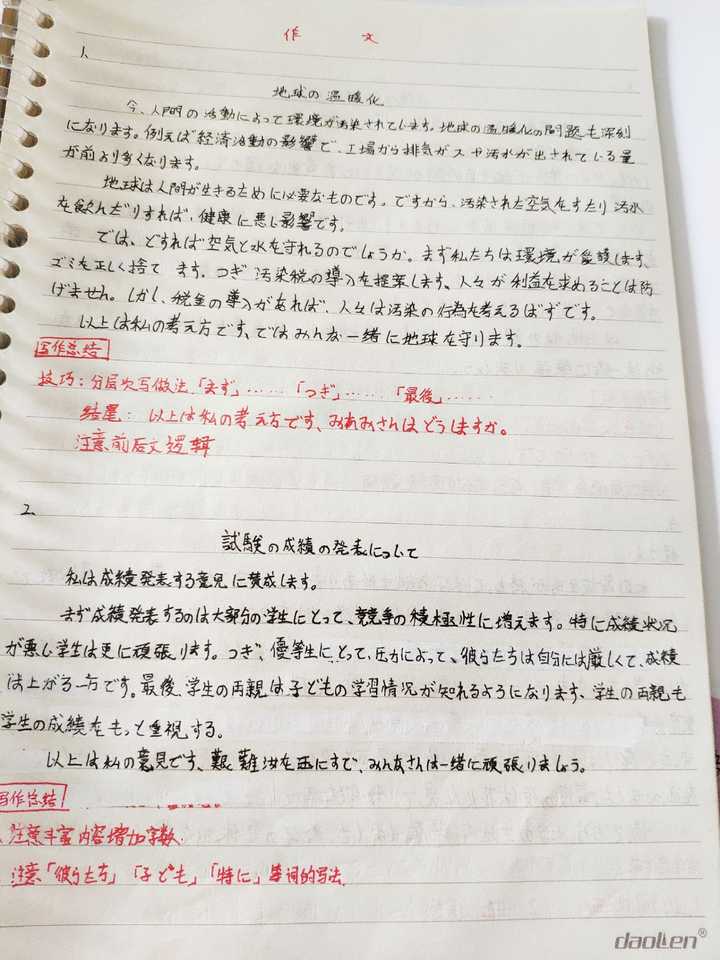 作 文
1.
地球の温暖化
今、人間の活動によって環境が汚染されています。地球の温暖化の問題も深刻
になります。例えば経済活動の影響で、工場から排気がスや活水が出されている量
が前より多くなります。
地球は人間が生きるために必要なものです。ですから、汚染された空気をすたり汚水
を飲んだりすれば、健康に悪い影響です。
では、どすれば空気と水を守れるのでしょうか。まず私たちは環境が愛護します、
ゴミを正しく捨て ます。つぎ 汚染税の導入を提案します。人々が利益を求めることは防
げません。しかし、税金の導入があれば、人々は汚染の行為を考えるはずです。
以上は私の考え方です、ではみんな一緒に地球を守ります。
写作总结
技巧:分层次写做法「まず」……「つぎ」……「最後……
结尾: 以上は私の考え方です、みなみさんはどうしますか。
注意前后文逻辑
2.
試験の成績の発表について
私は成績発表する意見に賛成します。
まず成績発表するのは大部分の学生にとって、競争の積極性に増えます。特に成績状況
が悪い学生は更に頑張ります。つぎ、優等生にとって、圧力によって、彼らたちは自分には厳しくて、成績
は上がる一方です。最後、学生の両親は子どもの学習情況が知れるようになります、学生の両親も
学生の成績をもっと重視する。
以上は私の意見です、艱難汝を玉にすで、みんなさんは一緒に頑張りましょう。
写作总结
注意丰富内容增加字数.
注意「彼らたち」「子ども」「特に」单词的写法
daoLien®